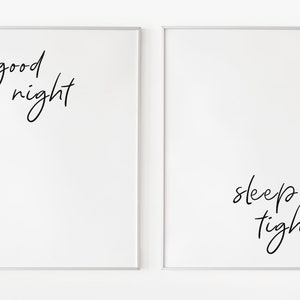 good
night
sleep
tigh